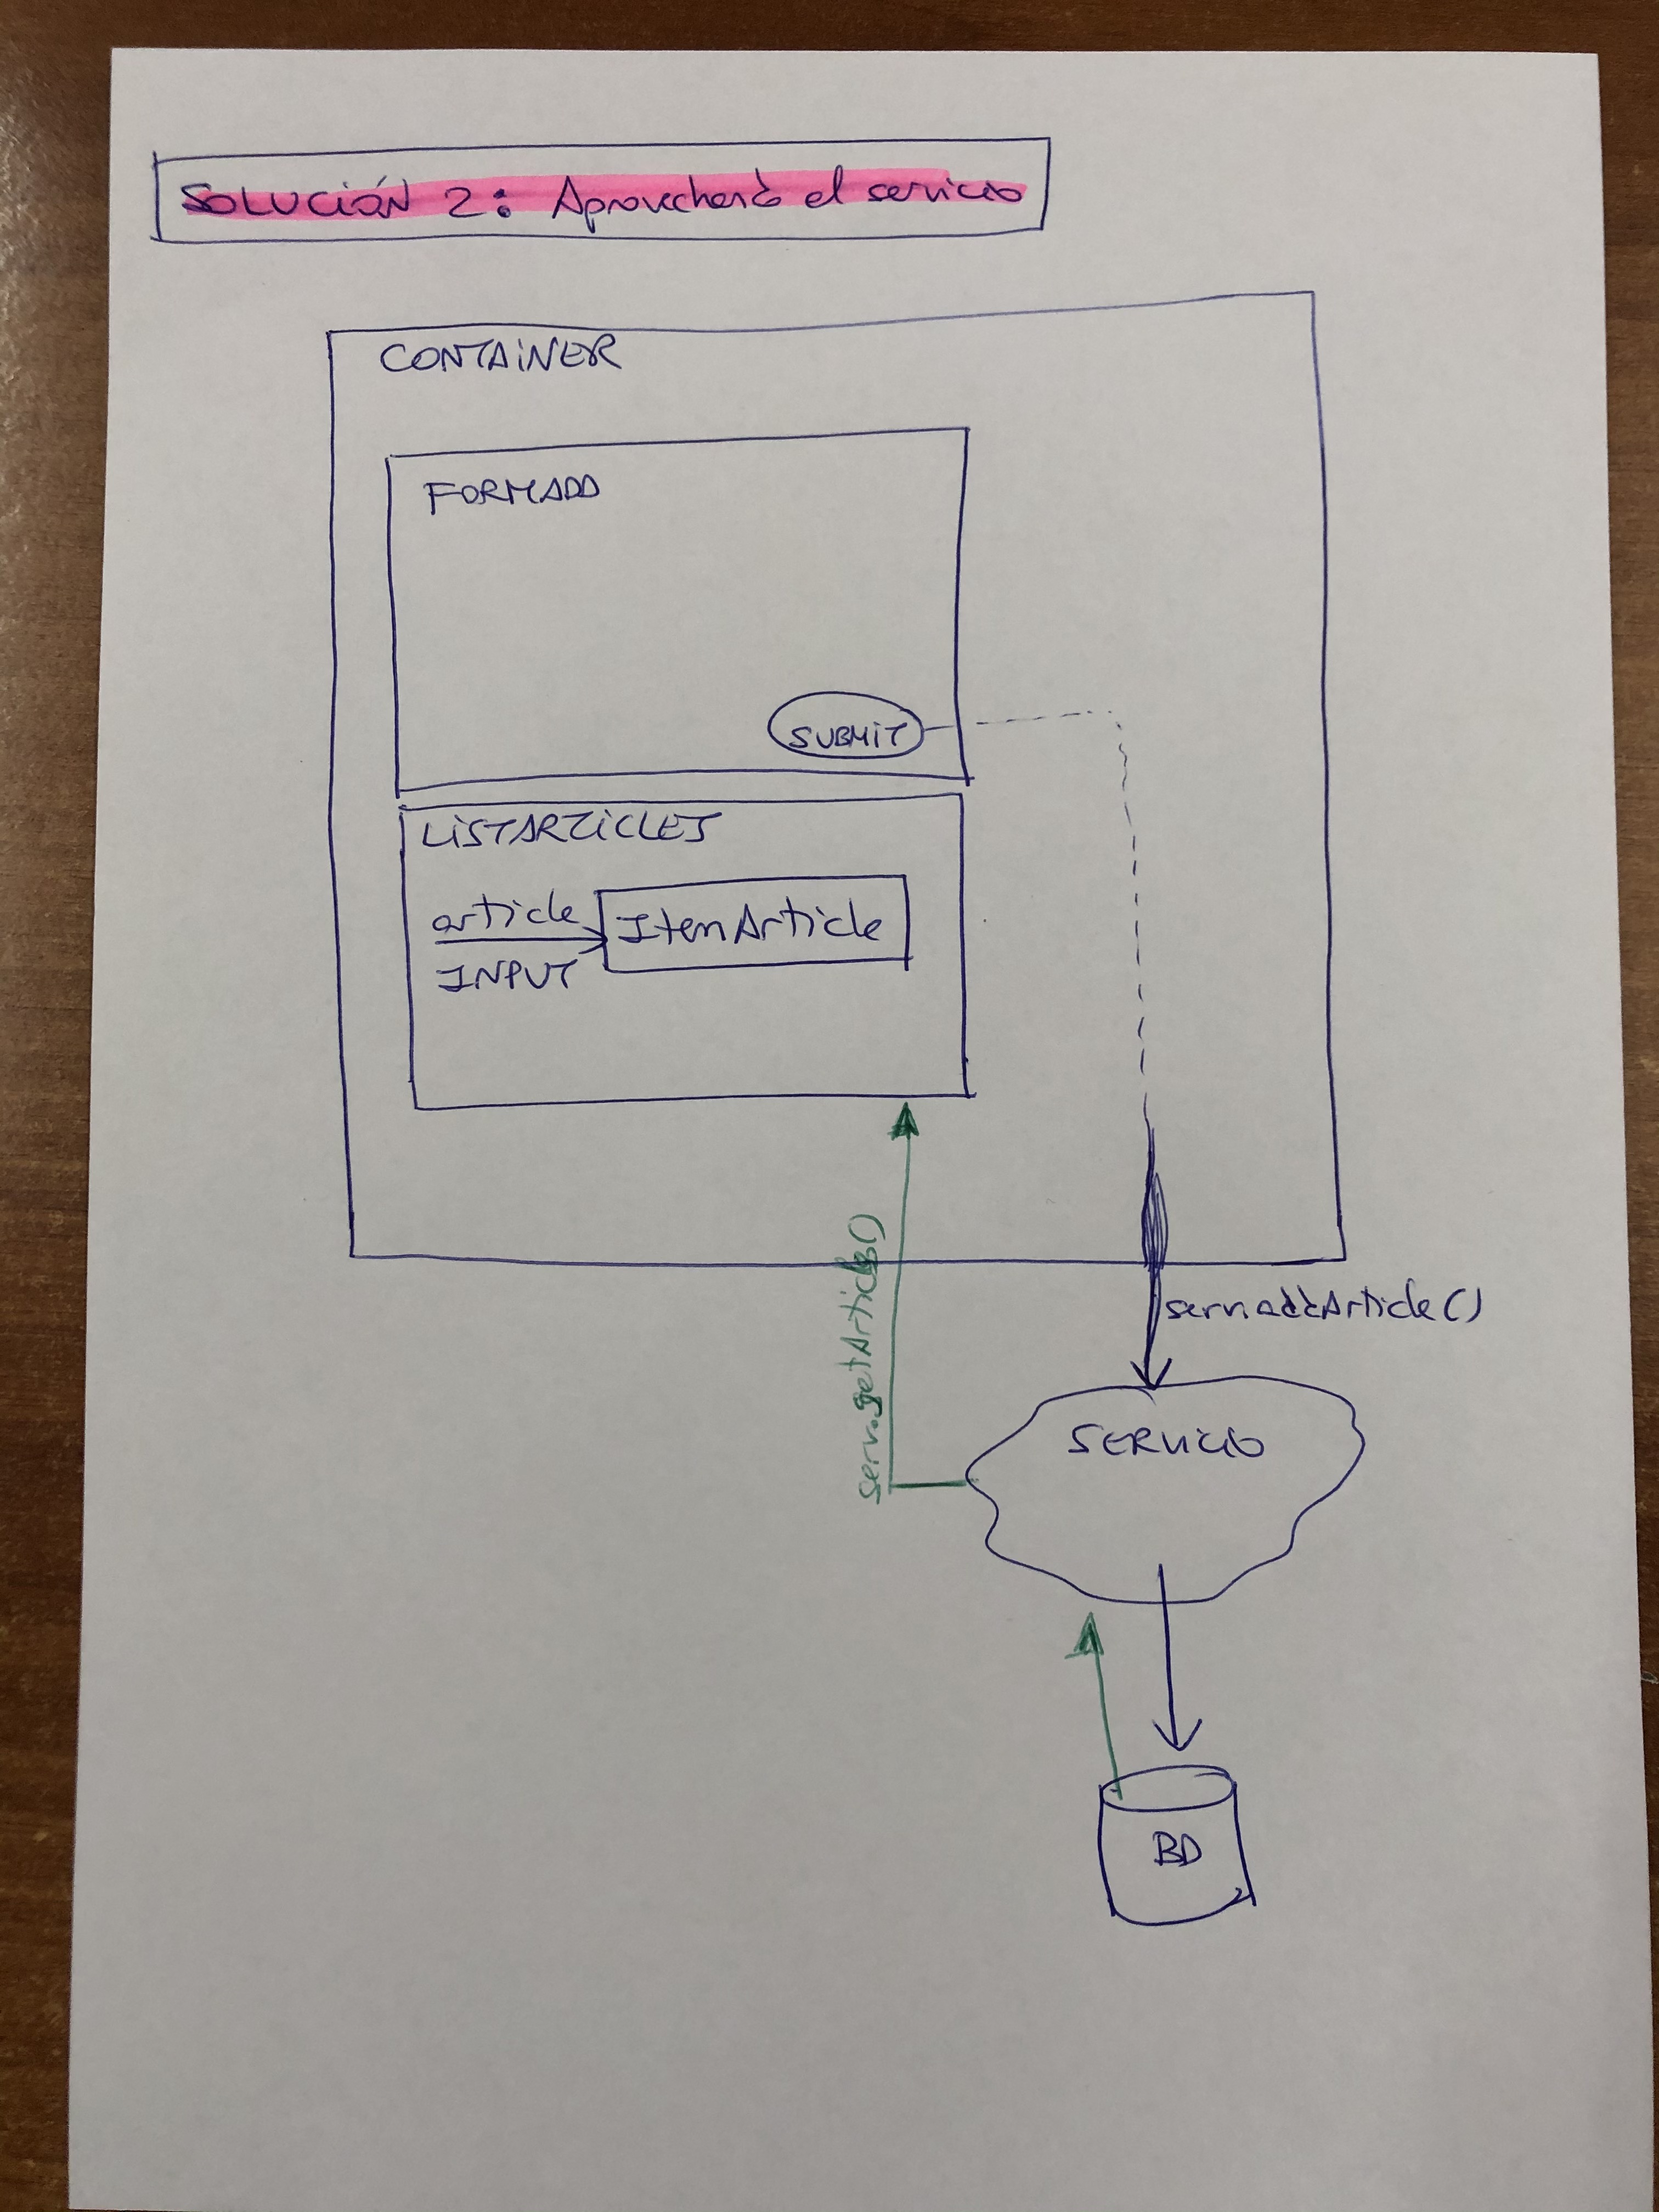 SOLUCIÓN 2: Aprovechando el servicio
CONTAINER
FORMADD
SUBMIT
LISTARTICLES
article
INPUT
ItemArticle
serv.getArticles()
serv.addArticle()
SERVICIO
BD